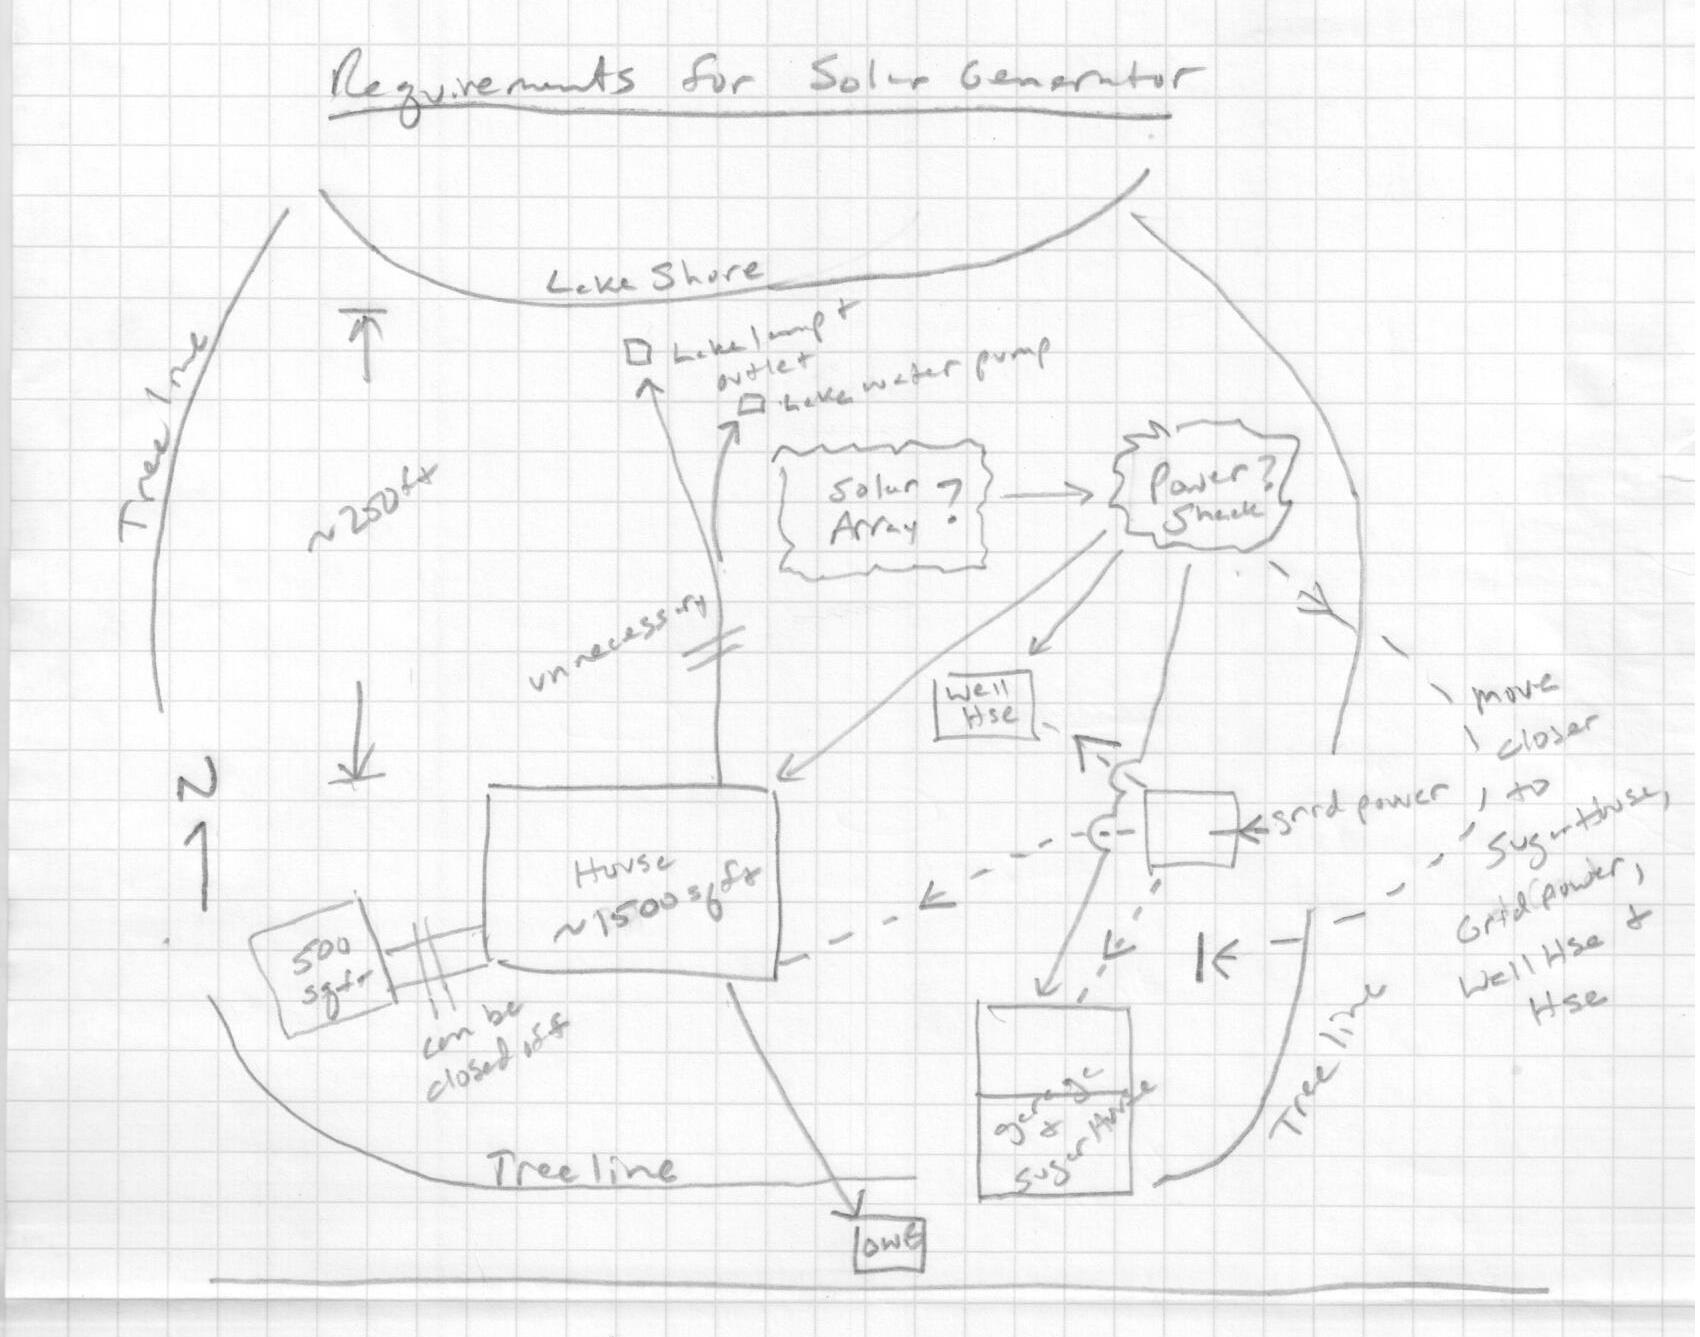 Requirements for Solar Generator
Lake Shore
Tree line
Lake lamp +
outlet
Lake water pump
~250ft
Solar ?
Array
Power ?
Shack
unnecessary
Well
Hse
N
grid power
move
closer
to
Sugar House,
Grid power,
Well Hse +
Hse
House
~1500 sq ft
500
sqft
can be
closed off
garage
+
Sugar House
Tree line
Tree line
OWE